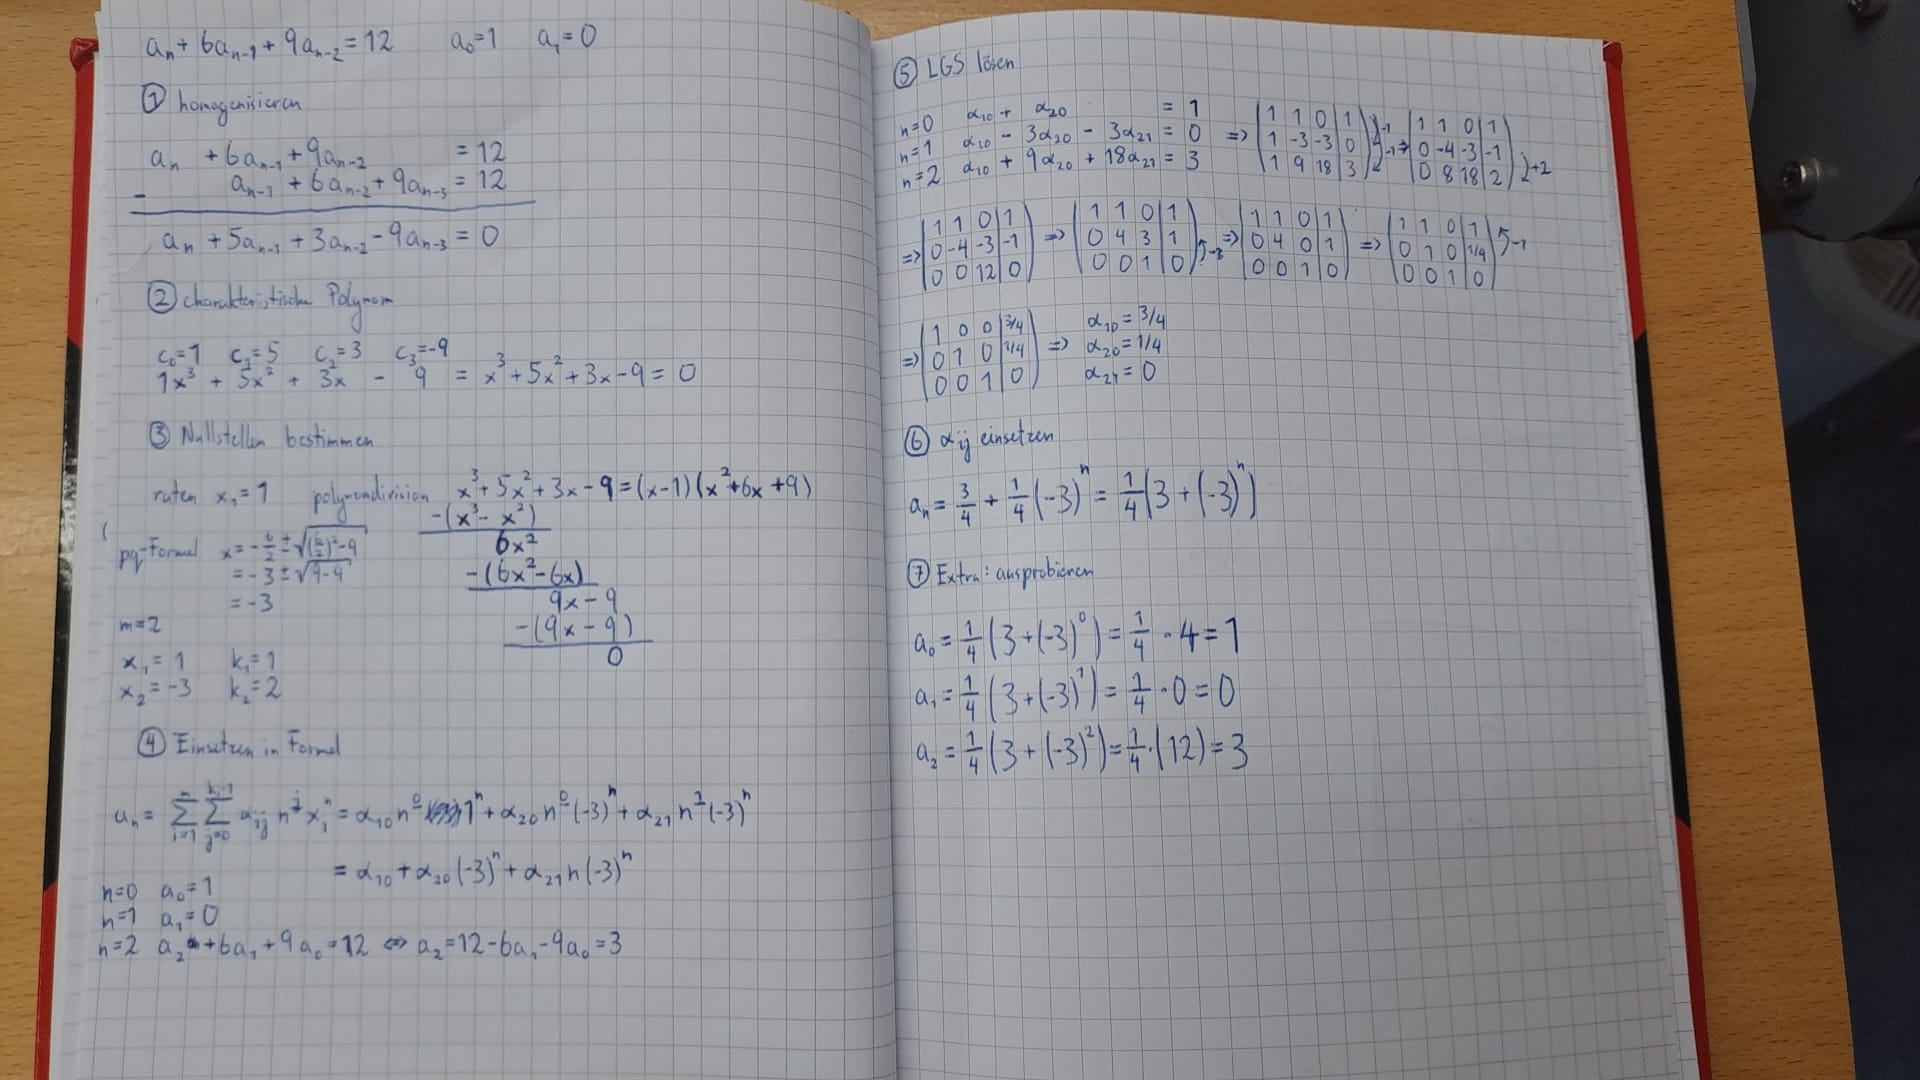 aₙ + 6aₙ₋₁ + 9aₙ₋₂ = 12 a₀=1 a₁=0
① homogenisieren
aₙ + 6aₙ₋₁ + 9aₙ₋₂ = 12
- aₙ₋₁ + 6aₙ₋₂ + 9aₙ₋₃ = 12
aₙ + 5aₙ₋₁ + 3aₙ₋₂ - 9aₙ₋₃ = 0
② charakteristische Polynom
c₀=1 c₁=5 c₂=3 c₃=-9
1x³ + 5x² + 3x - 9 = x³ + 5x² + 3x - 9 = 0
③ Nullstellen bestimmen
raten x₁ = 1 polynomdivision x³ + 5x² + 3x - 9 = (x-1)(x² + 6x + 9)
-(x³ - x²)
6x²
-(6x² - 6x)
9x - 9
-(9x - 9)
0
pq-Formel x = -6/2 ± √((6/2)² - 9)
= -3 ± √(9-9)
= -3
m=2
x₁ = 1 k₁ = 1
x₂ = -3 k₂ = 2
④ Einsetzen in Formel
aₙ = Σᵢ₌₁ᵐ Σⱼ₌₀^(kᵢ-1) αᵢⱼ nʲ xᵢⁿ = α₁₀ n⁰ 1ⁿ + α₂₀ n⁰ (-3)ⁿ + α₂₁ n¹ (-3)ⁿ
= α₁₀ + α₂₀ (-3)ⁿ + α₂₁ n (-3)ⁿ
n=0 a₀=1
n=1 a₁=0
n=2 a₂ + 6a₁ + 9a₀ = 12 ⇔ a₂ = 12 - 6a₁ - 9a₀ = 3
⑤ LGS lösen
n=0 α₁₀ + α₂₀ = 1
n=1 α₁₀ - 3α₂₀ - 3α₂₁ = 0
n=2 α₁₀ + 9α₂₀ + 18α₂₁ = 3
=> 1 1 0 | 1
1 -3 -3 | 0
1 9 18 | 3
-1
-1
=> 1 1 0 | 1
0 -4 -3 | -1
0 8 18 | 2
+2
=> 1 1 0 | 1
0 -4 -3 | -1
0 0 12 | 0
=> 1 1 0 | 1
0 4 3 | 1
0 0 1 | 0
-3
=> 1 1 0 | 1
0 4 0 | 1
0 0 1 | 0
=> 1 1 0 | 1
0 1 0 | 1/4
0 0 1 | 0
-1
=> 1 0 0 | 3/4
0 1 0 | 1/4
0 0 1 | 0
=> α₁₀ = 3/4
α₂₀ = 1/4
α₂₁ = 0
⑥ αᵢⱼ einsetzen
aₙ = 3/4 + 1/4 (-3)ⁿ = 1/4 (3 + (-3)ⁿ)
⑦ Extra: ausprobieren
a₀ = 1/4 (3 + (-3)⁰) = 1/4 · 4 = 1
a₁ = 1/4 (3 + (-3)¹) = 1/4 · 0 = 0
a₂ = 1/4 (3 + (-3)²) = 1/4 · (12) = 3